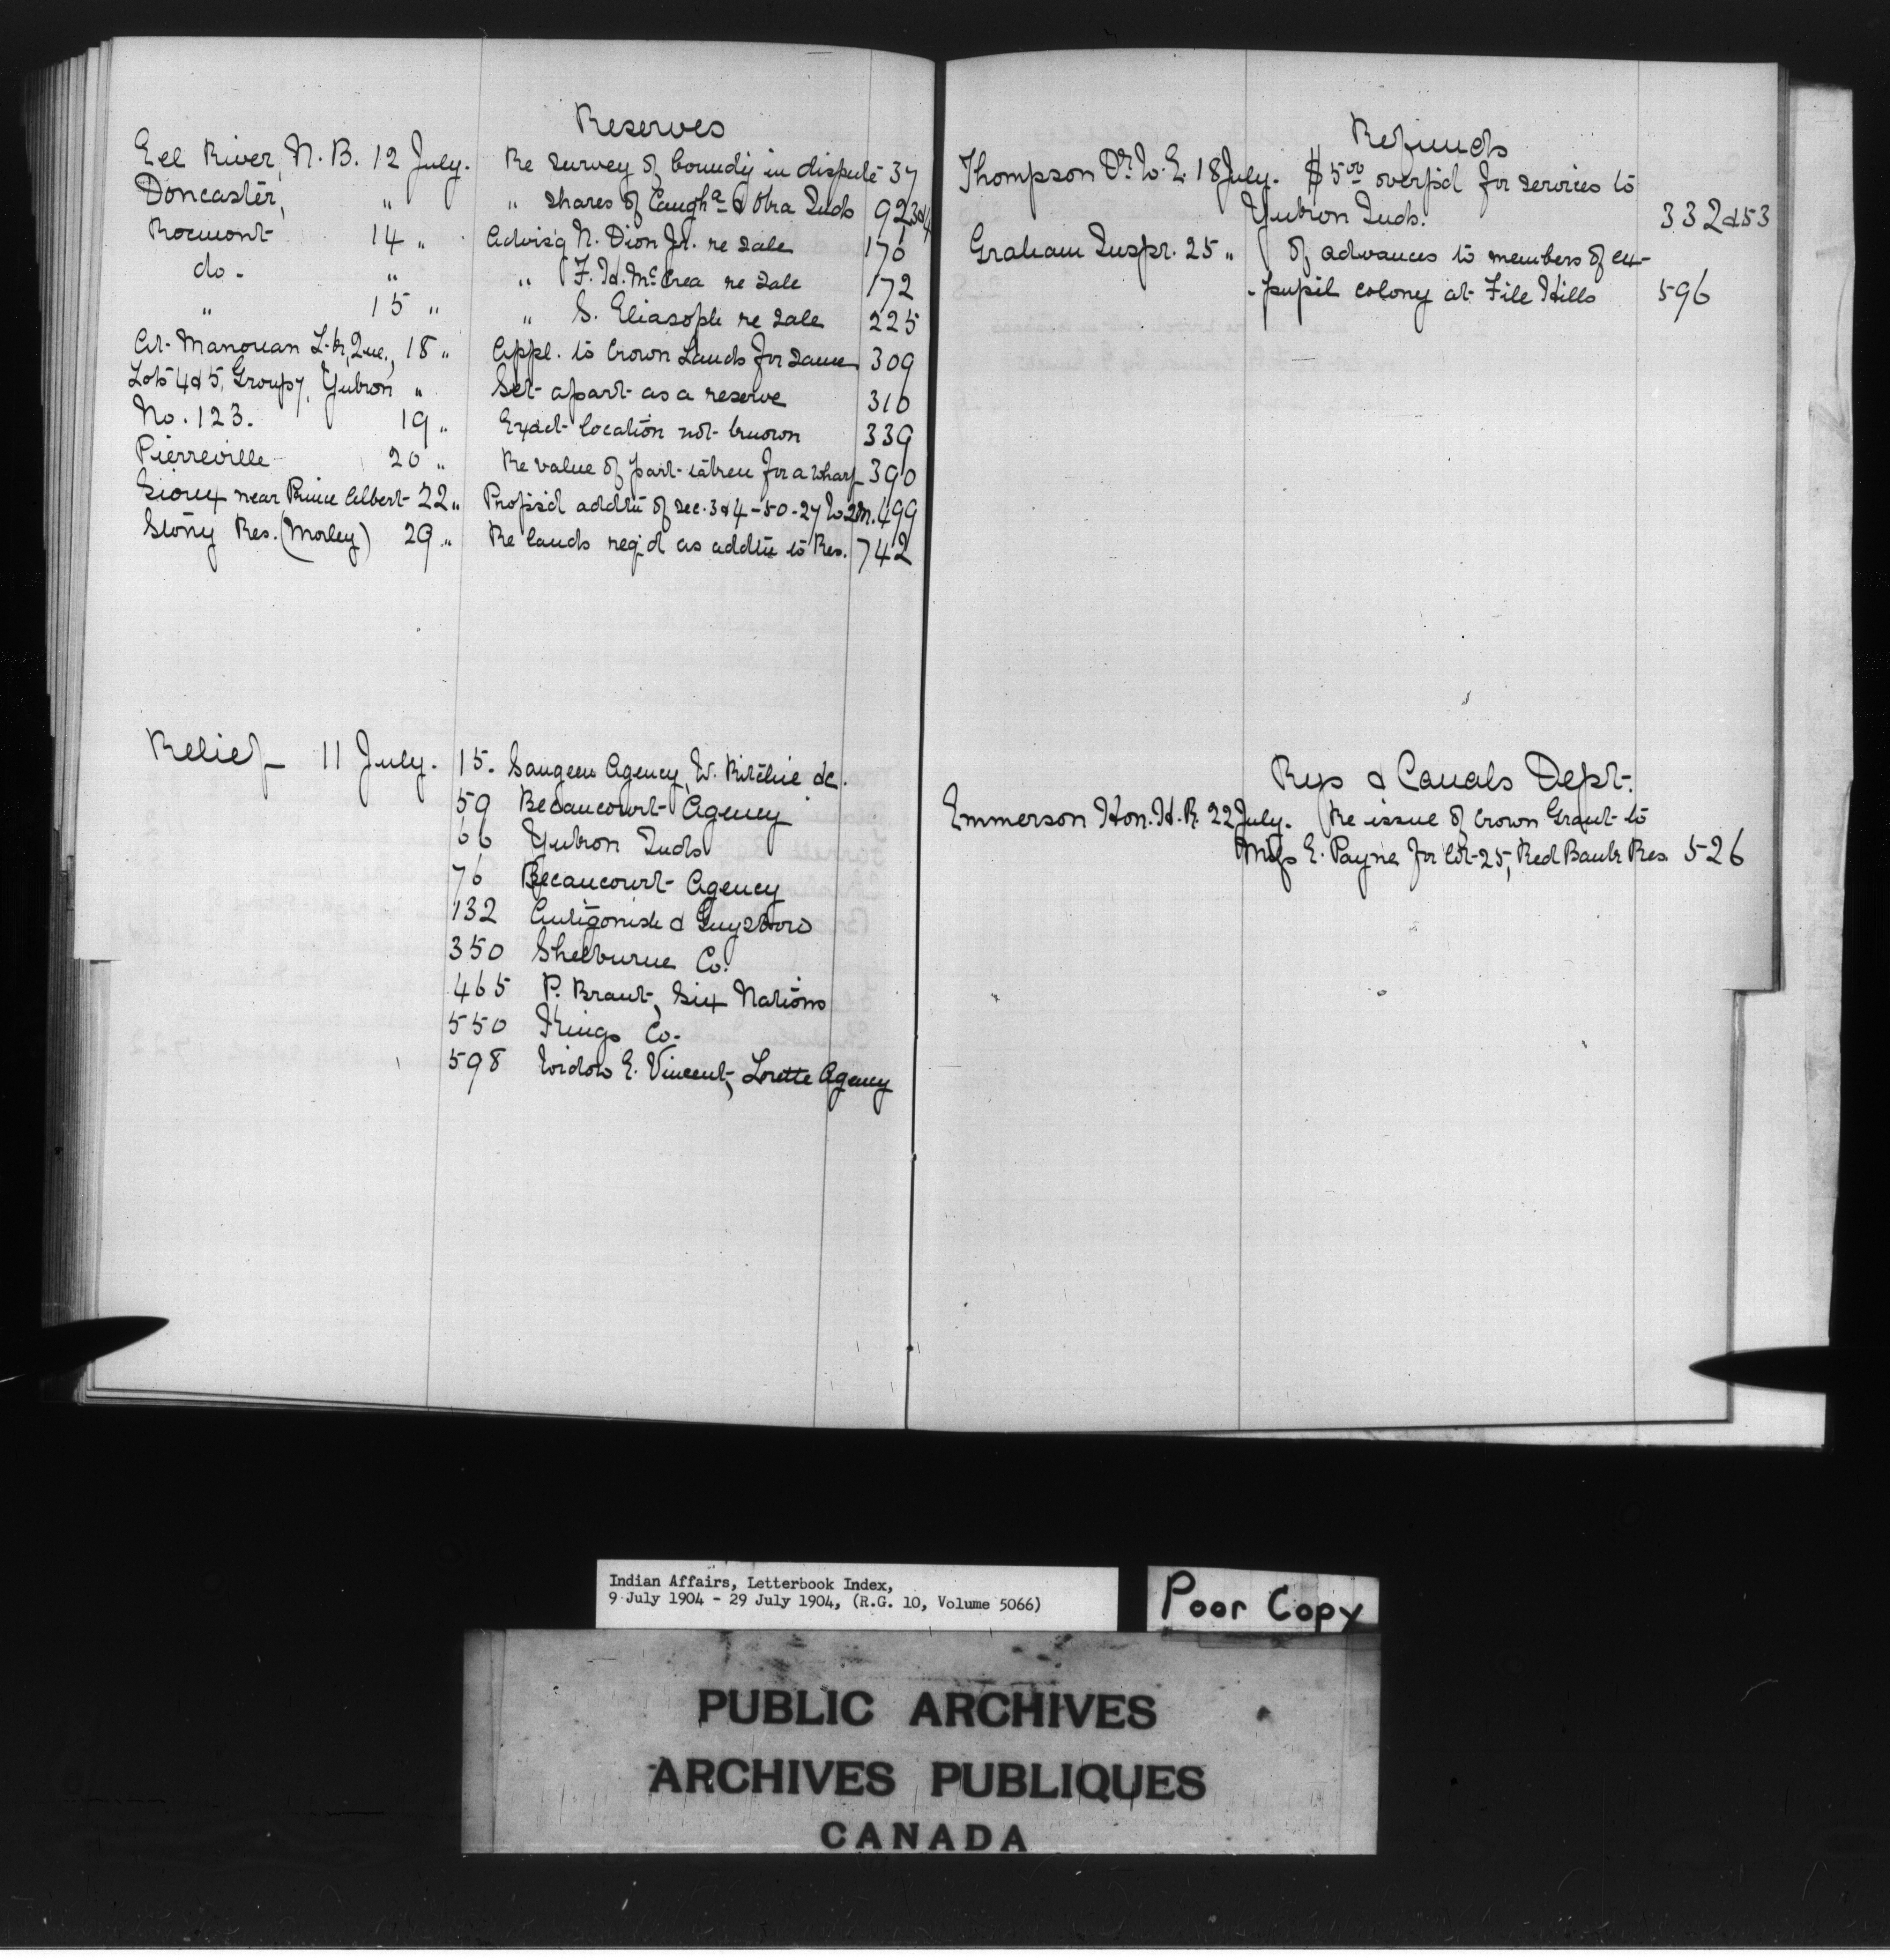 Reserves
Eel River, N.B. 12 July. Re survey of boundy in dispute 37
Doncaster, " " shares of Caughᵃ & Oka Inds 92 3&4
Rocmont 14 " Advis'g N. Dion Jr. re sale 170
do. " " F. H. McCrea re sale 172
" 15 " " S. Eliasoph re sale 225
At Manouan L-k, Que., 18 " Appl. to Crown Lands for same 309
Lots 4&5, Group 7, Yukon " Set apart as a reserve 310
No. 123. 19 " Exact location not known 339
Pierreville 20 " Re value of part taken for a wharf 390
Sioux near Prince Albert 22 " Prop's'd addtn of sec. 3&4-50-27 W2M. 499
Stony Res. (Morley) 29 " Re lands req'd as addtn to Res. 742
Relief 11 July. 15. Saugeen Agency, W. Ritchie &c.
59 Becancourt Agency
66 Yukon Inds
76 Becancourt Agency
132 Antigonish & Guysboro
350 Shelburne Co.
465 P. Brant, Six Nations
550 Kings Co.
598 Widow E. Vincent, Lorette Agency
Refunds
Thompson Dr. W. E. 18 July. $5.00 overp'd for services to
Yukon Inds. 332&53
Graham Inspr. 25 " Of advances to members of ex-
-pupil colony at File Hills 596
Rys & Canals Dept.
Emmerson Hon. H. R. 22 July. Re issue of Crown Grant to
Miss E. Payne for lot 25, Red Bank Res. 526
Indian Affairs, Letterbook Index,
9 July 1904 - 29 July 1904, (R.G. 10, Volume 5066)
Poor Copy
PUBLIC ARCHIVES
ARCHIVES PUBLIQUES
CANADA